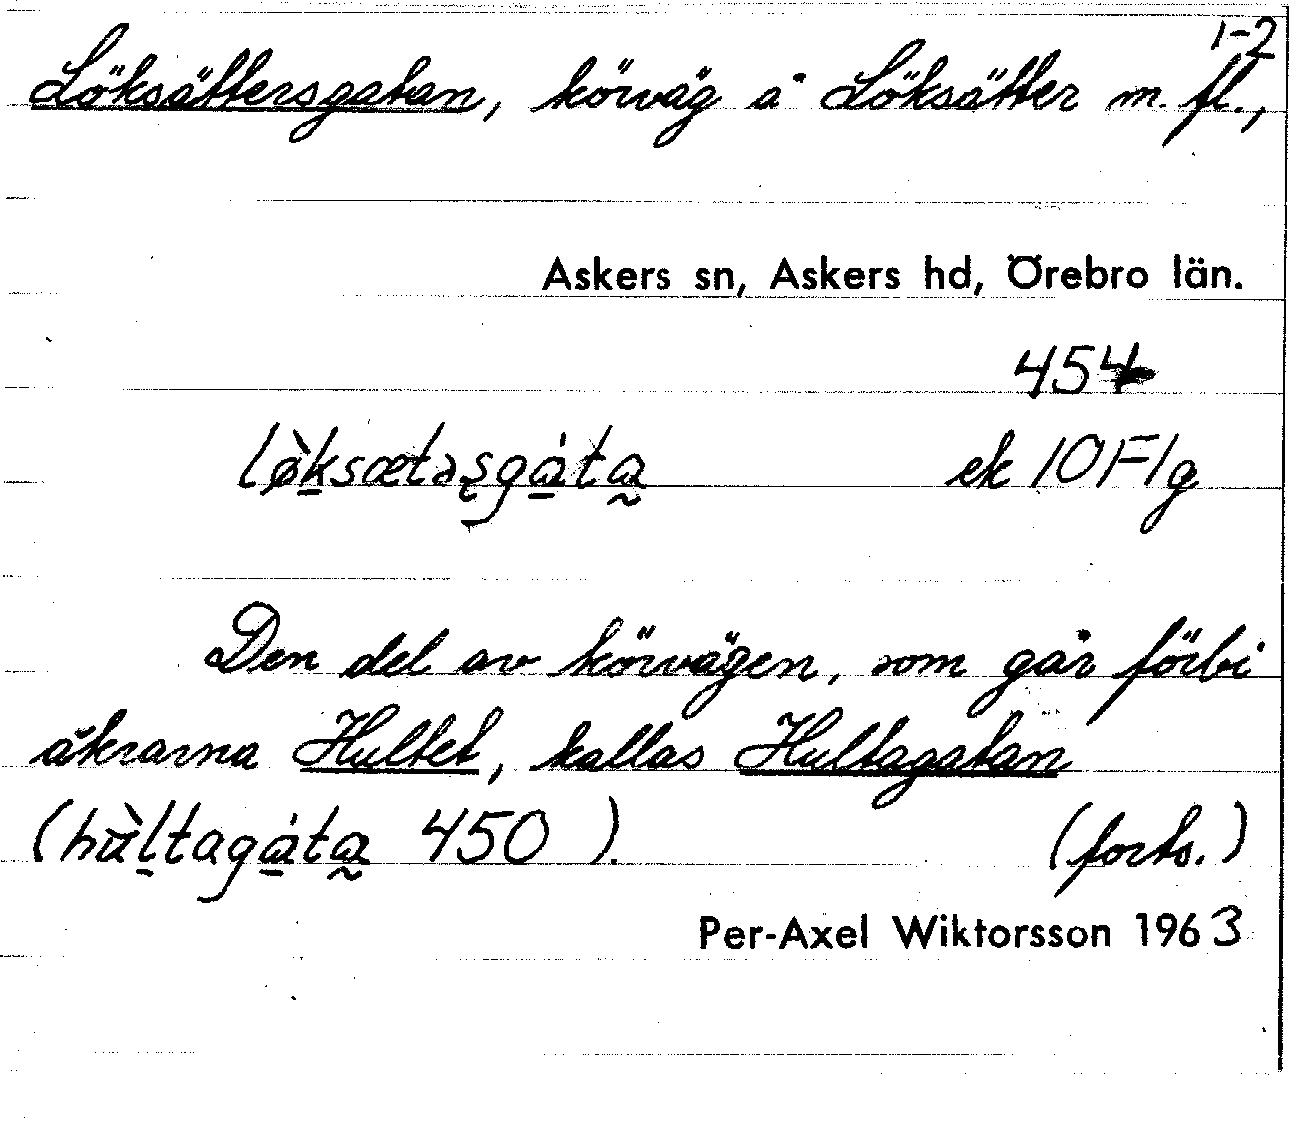 1-2
Löksättersgatan, körväg å Löksätter m. fl.,
Askers sn, Askers hd, Örebro län.
454
lø̀ḵsætəʂga̱̍ta̰ ek 10F1g
Den del av körvägen, som går förbi
åkrarna Hultet, kallas Hultagatan
(hùḻtaga̱̍ta̰ 450 ). (forts.)
Per-Axel Wiktorsson 1963